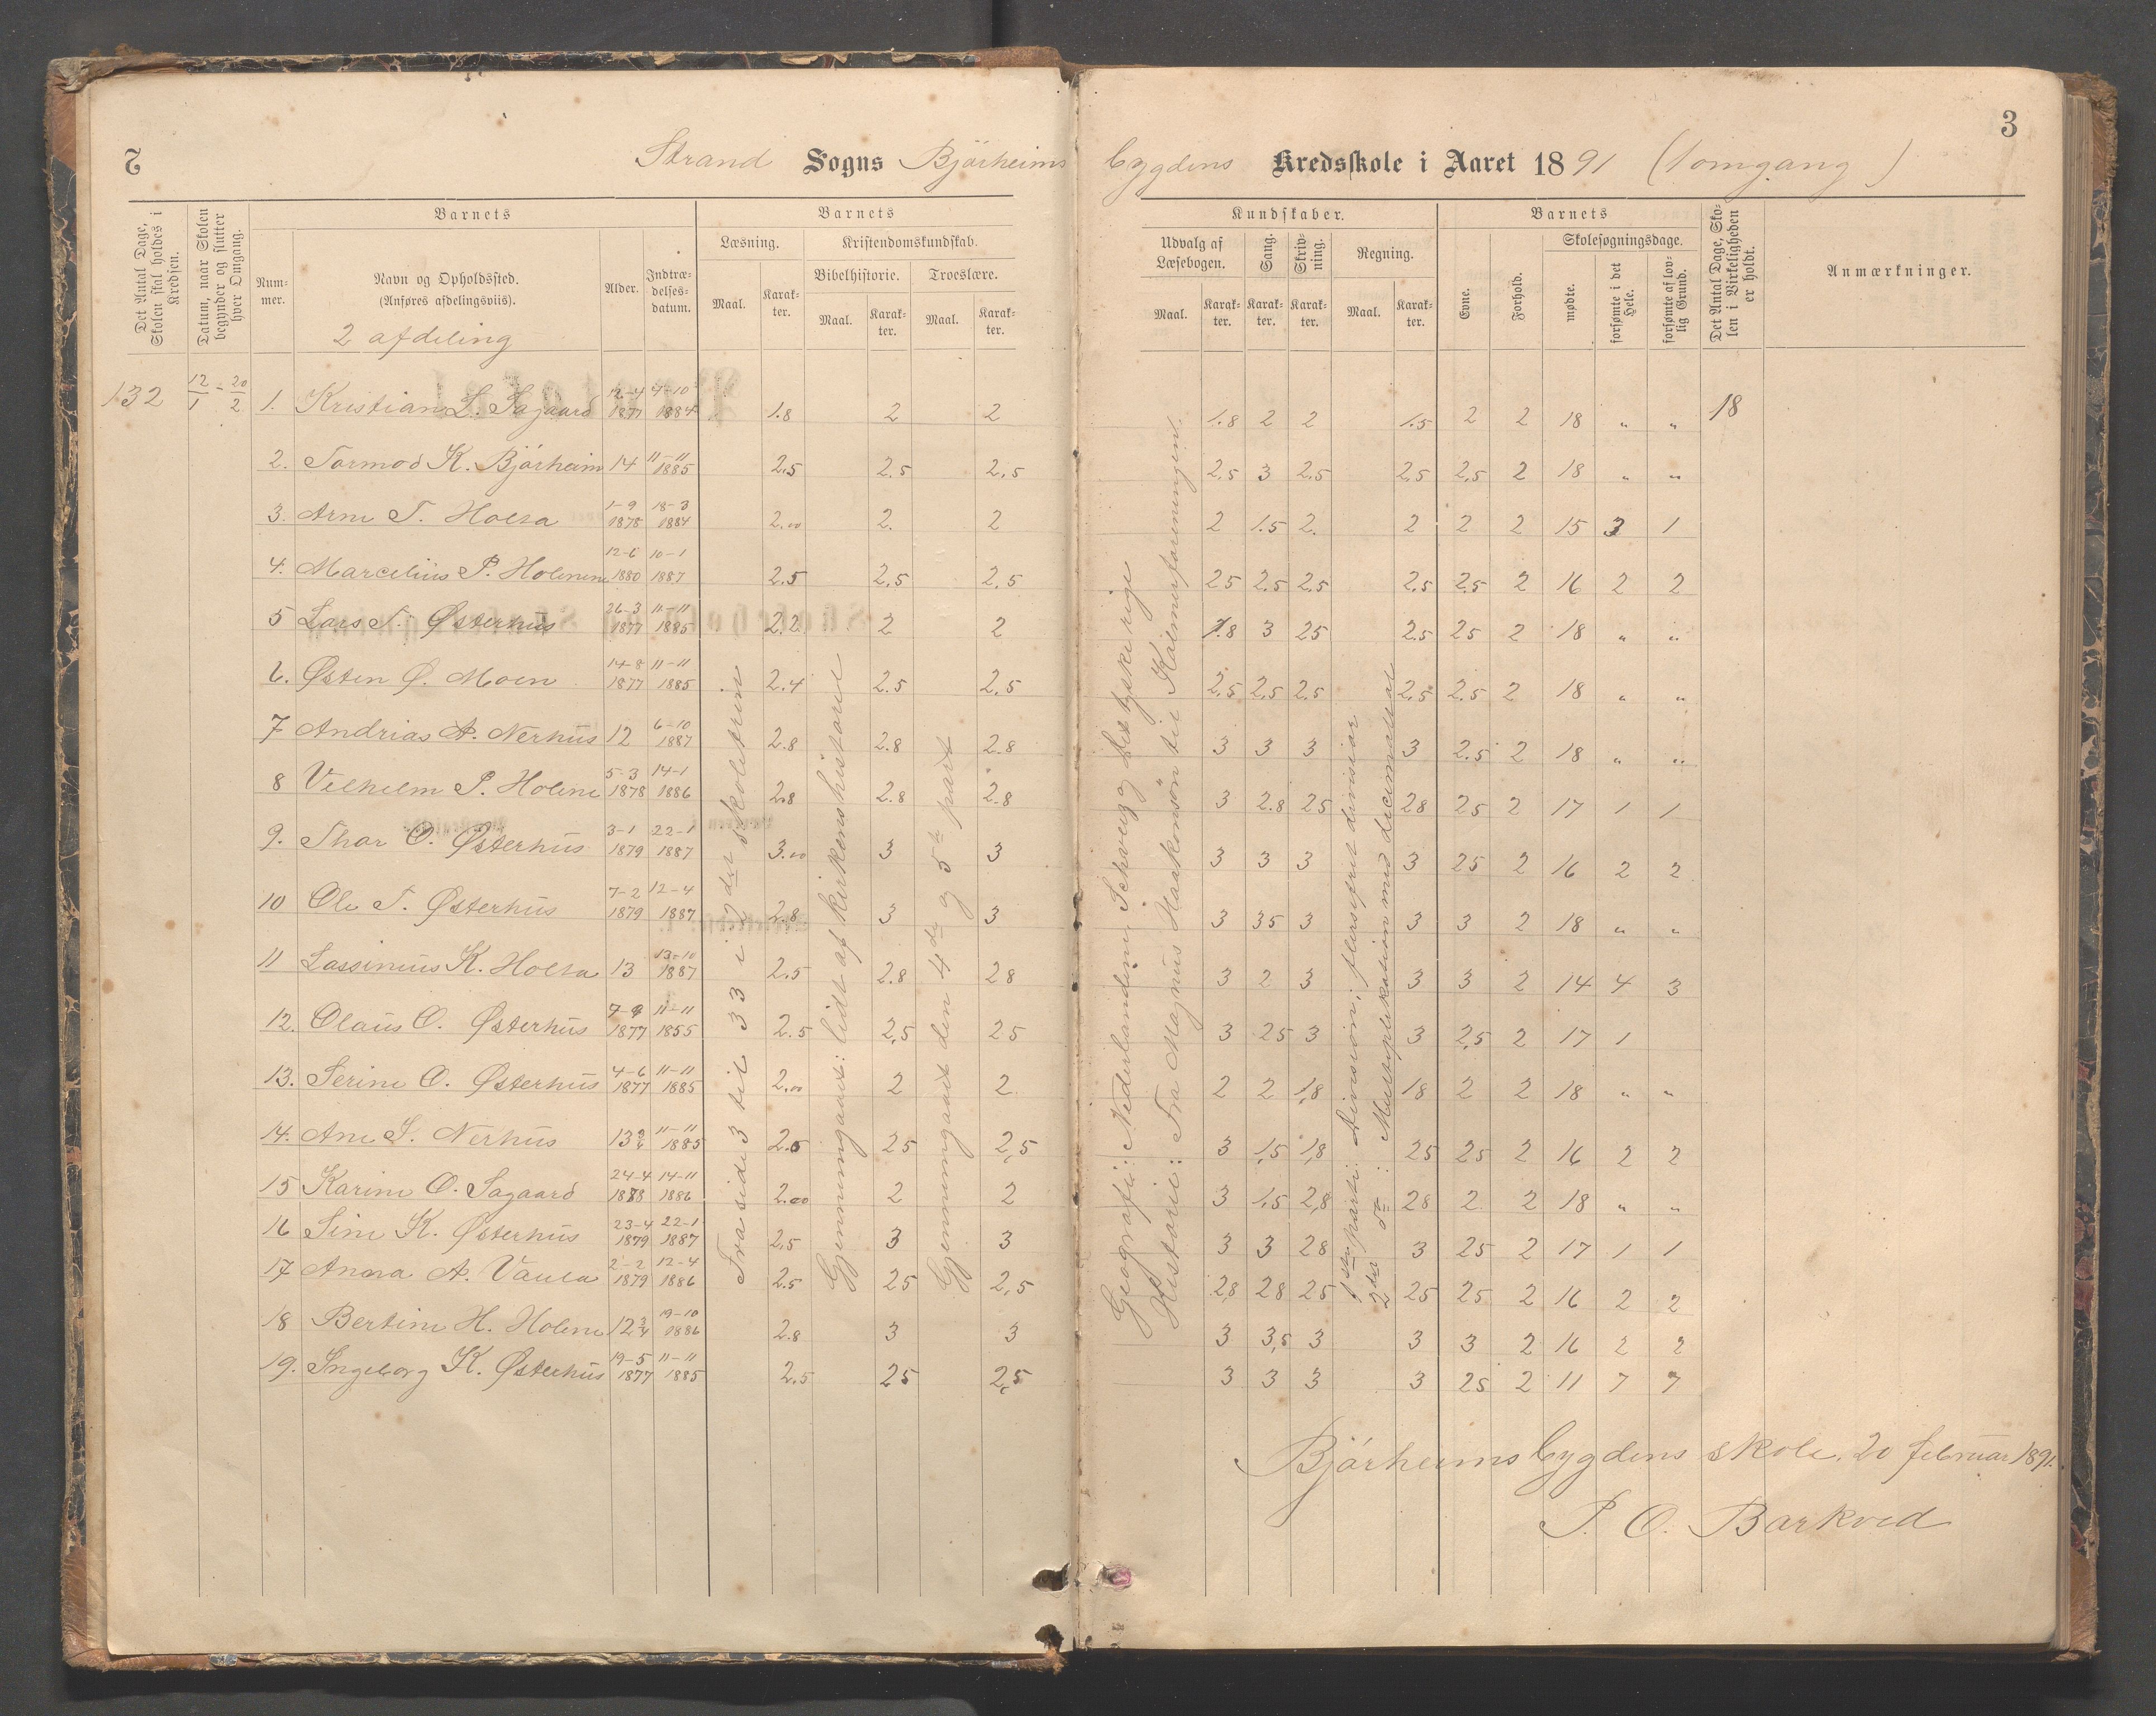 2
Strand Sogns Bjørheims
bygdens Kredsskole i Aaret 1891 (1 omgang)
3
Det Antal Dage, Skolen skal holdes i Kredsen.
Datum, naar Skolen begynder og slutter hver Omgang.
Barnets
Nummer.
Navn og Opholdssted.
(Anføres afdelingsviis).
2 afdeling
Alder.
Indtrædelsesdatum.
Barnets
Læsning.
Maal.
Karakter.
Kristendomskundskab.
Bibelhistorie.
Maal.
Karakter.
Troeslære.
Maal.
Karakter.
Kundskaber.
Udvalg af Læsebogen.
Maal.
Karakter.
Sang.
Karakter.
Skrivning.
Karakter.
Regning.
Maal.
Karakter.
Barnets
Evne.
Forhold.
Skolesøgningsdage.
mødte.
forsømte i det Hele.
forsømte af lovlig Grund.
Det Antal Dage, Skolen i Virkeligheden er holdt.
Anmærkninger.
132 12/1 - 20/2 1. Kristian L. Sagaard 12-4 1877 7-10 1884 1.8 2 2 1.8 2 2 1.5 2 2 18 " " 18
2. Tormod K. Bjørheim 14 11-11 1885 2.5 2.5 2.5 2.5 3 2.5 2.5 2.5 2 18 " "
3. Arne T. Holta 1-9 1878 18-3 1884 2.00 2. 2 2 1.5 2. 2 2 2 15 3 1
4. Marcelius P. Holmene 12-6 1880 10-1 1887 2.5 2.5 2.5 25 2.5 2.5 2.5 2.5 2 16 2 2
5 Lars T. Østerhus 26-3 1877 11-11 1885 2.2 2 2 1.8 3 25 2.5 25 2 18 " "
6. Østen Ø. Moen 14-8 1877 11-11 1885 2.4 2.5 2.5 2.5 2.5 2.5 2.5 2.5 2 18 " "
7 Andrias A. Nerhus 12 6-10 1887 2.8 2.8 2.8 3 3 3 3 2.5 2 18 " "
8 Vilhelm P. Holme 5-3 1878 14-1 1886 2.8 2.8 2.8 3 2.8 25 28 25 2 17 1 1
9. Thor O. Østerhus 3-1 1879 22-1 1887 3.00 3 3 3 3 3 3 25 2 16 2 2
10 Ole T. Østerhus 7-2 1879 12-4 1887 2.8 3 3 3 35 3 3 3 2 18 " "
11 Lassinius K. Holta 13 13-10 1887 2.5 2.8 28 3 2 3 3 3 2 14 4 3
12. Olaus O. Østerhus 1877 11-11 1855 2.5 2.5 25 3 25 3 3 2.5 2 17 1
13. Serine O. Østerhus 4-6 1877 11-11 1885 2.00 2 2 2 2 1.8 18 2 2 18 " "
14. Ane S. Nerhus 13 11-11 1885 2.5 25 2,5 3 1,5 1,8 25 25 2 16 2 2
15 Karine O. Sagaard 24-4 1878 14-11 1886 2.00 2 2 3 1,5 2,8 28 2 2 18 " "
16 Sine K. Østerhus 23-4 1879 22-1 1887 2,5 3 3 3 3 28 3 25 2 17 1 1
17 Anna A. Vaula 2-2 1879 12-4 1886 2.5 25 2,5 2,8 28 25 25 25 2 16 2 2
18 Bertine H. Holme 12 3/4 19-10 1886 2.8 3 3 3 3,5 3 3 3 2 16 2 2
19. Ingeborg K. Østerhus 19-5 1877 11-11 1885 2.5 25 2,5 3 3 3 3 25 2 11 7 7
Fra side 3 til 33 i 2det skoletrin
Gjennemgaaet: lidt af kirkens historie
Gjennemgaaet den 4de og 5te part
Geografi: Nederlandene, Schveig og det tyske rige
Historie: Fra Magnus Haakonsøn til Kalmarforeningen.
1ste parti: Division; flersifret divisior
2det do: Multiplikation med decimaltal
Bjørheimsbygdens skole, 20 februar 1891.
P. O. Barkved